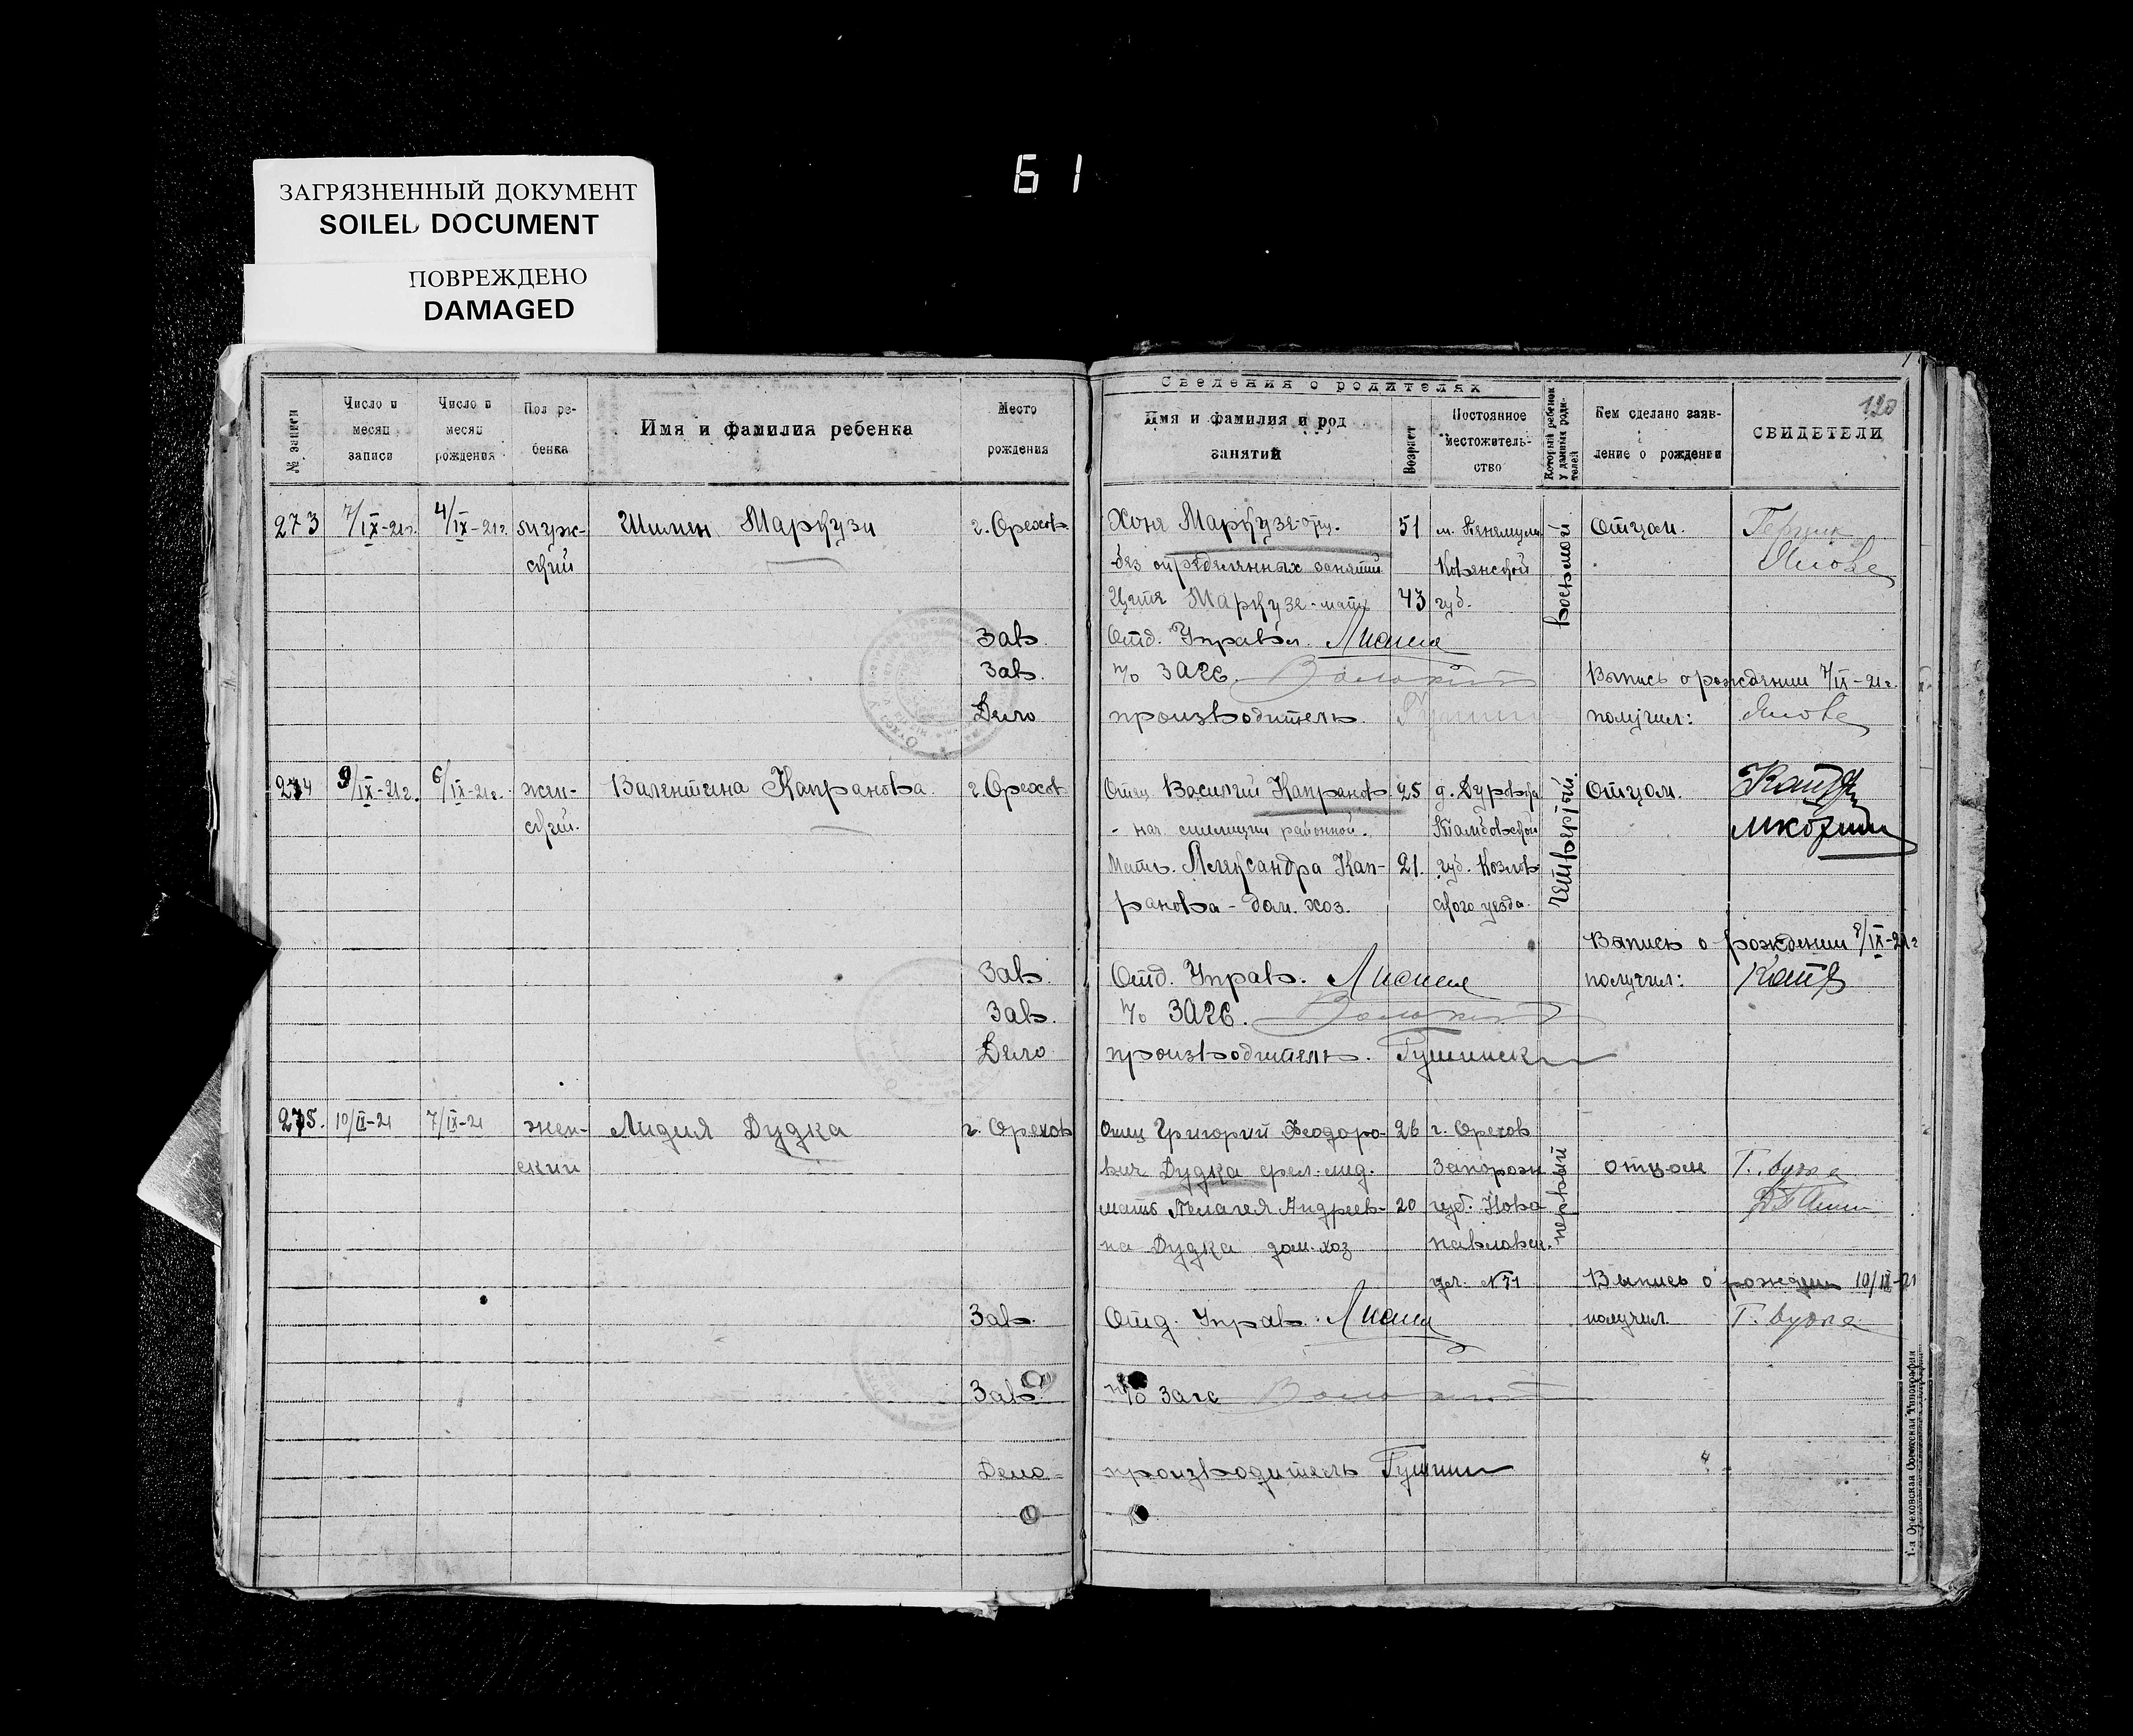 61
ЗАГРЯЗНЕННЫЙ ДОКУМЕНТ
SOILED DOCUMENT
ПОВРЕЖДЕНО
DAMAGED
120
Сведения о родителях
№ записи
Число и месяц записи
Число и месяц рождения
Пол ребенка
Имя и фамилия ребенка
Место рождения
Имя и фамилия и род занятий
Возраст
Постоянное местожительство
Который ребенок у данных родителей
Кем сделано заявление о рождении
СВИДЕТЕЛИ
273 7/IX-21г. 4/IX-21г. муж- Шимен Маркузи г. Орехов. Хоня Маркузе-отц. 51 м. восьмой Отцом.
ский без определенных занятий Ковенской
Маркузе-мать 43 губ.
Зав. Отд. Управл.
Зав. по ЗАГС. Выпись о рождении 7/IX-21г.
Дело производитель. получил:
274 9/IX-21г. 6/IX-21г. жен- Валентина Капранова. г. Орехов Отец Василий Капранов. 25 д. четвертый. Отцом.
ский. - нач. милиции районной. Тамбовской
Мать. Александра Кап- 21. губ. Козлов
ранова - дом. хоз. ского уезда.
Выпись о рождении 9/IX-21г
Зав. Отд. Управ. получил:
Зав. по ЗАГС.
Дело производитель.
275. 10/IX-21 7/IX-21 жен- Лидия Дудка г. Орехов Отец Григорий Феодоро- 26 г. Орехов первый
ский вич Дудка Запорож отцом Г. Дудка
мать Пелагея Андреев- 20 губ. Ново
на Дудка дом. хоз павловск.
№71 Выпись о рожден 10/IX-21
Зав. Отд. Управ. получил. Г. Дудка
Зав. по Загс
Дело производитель
1-я Ореховская Советская Типография